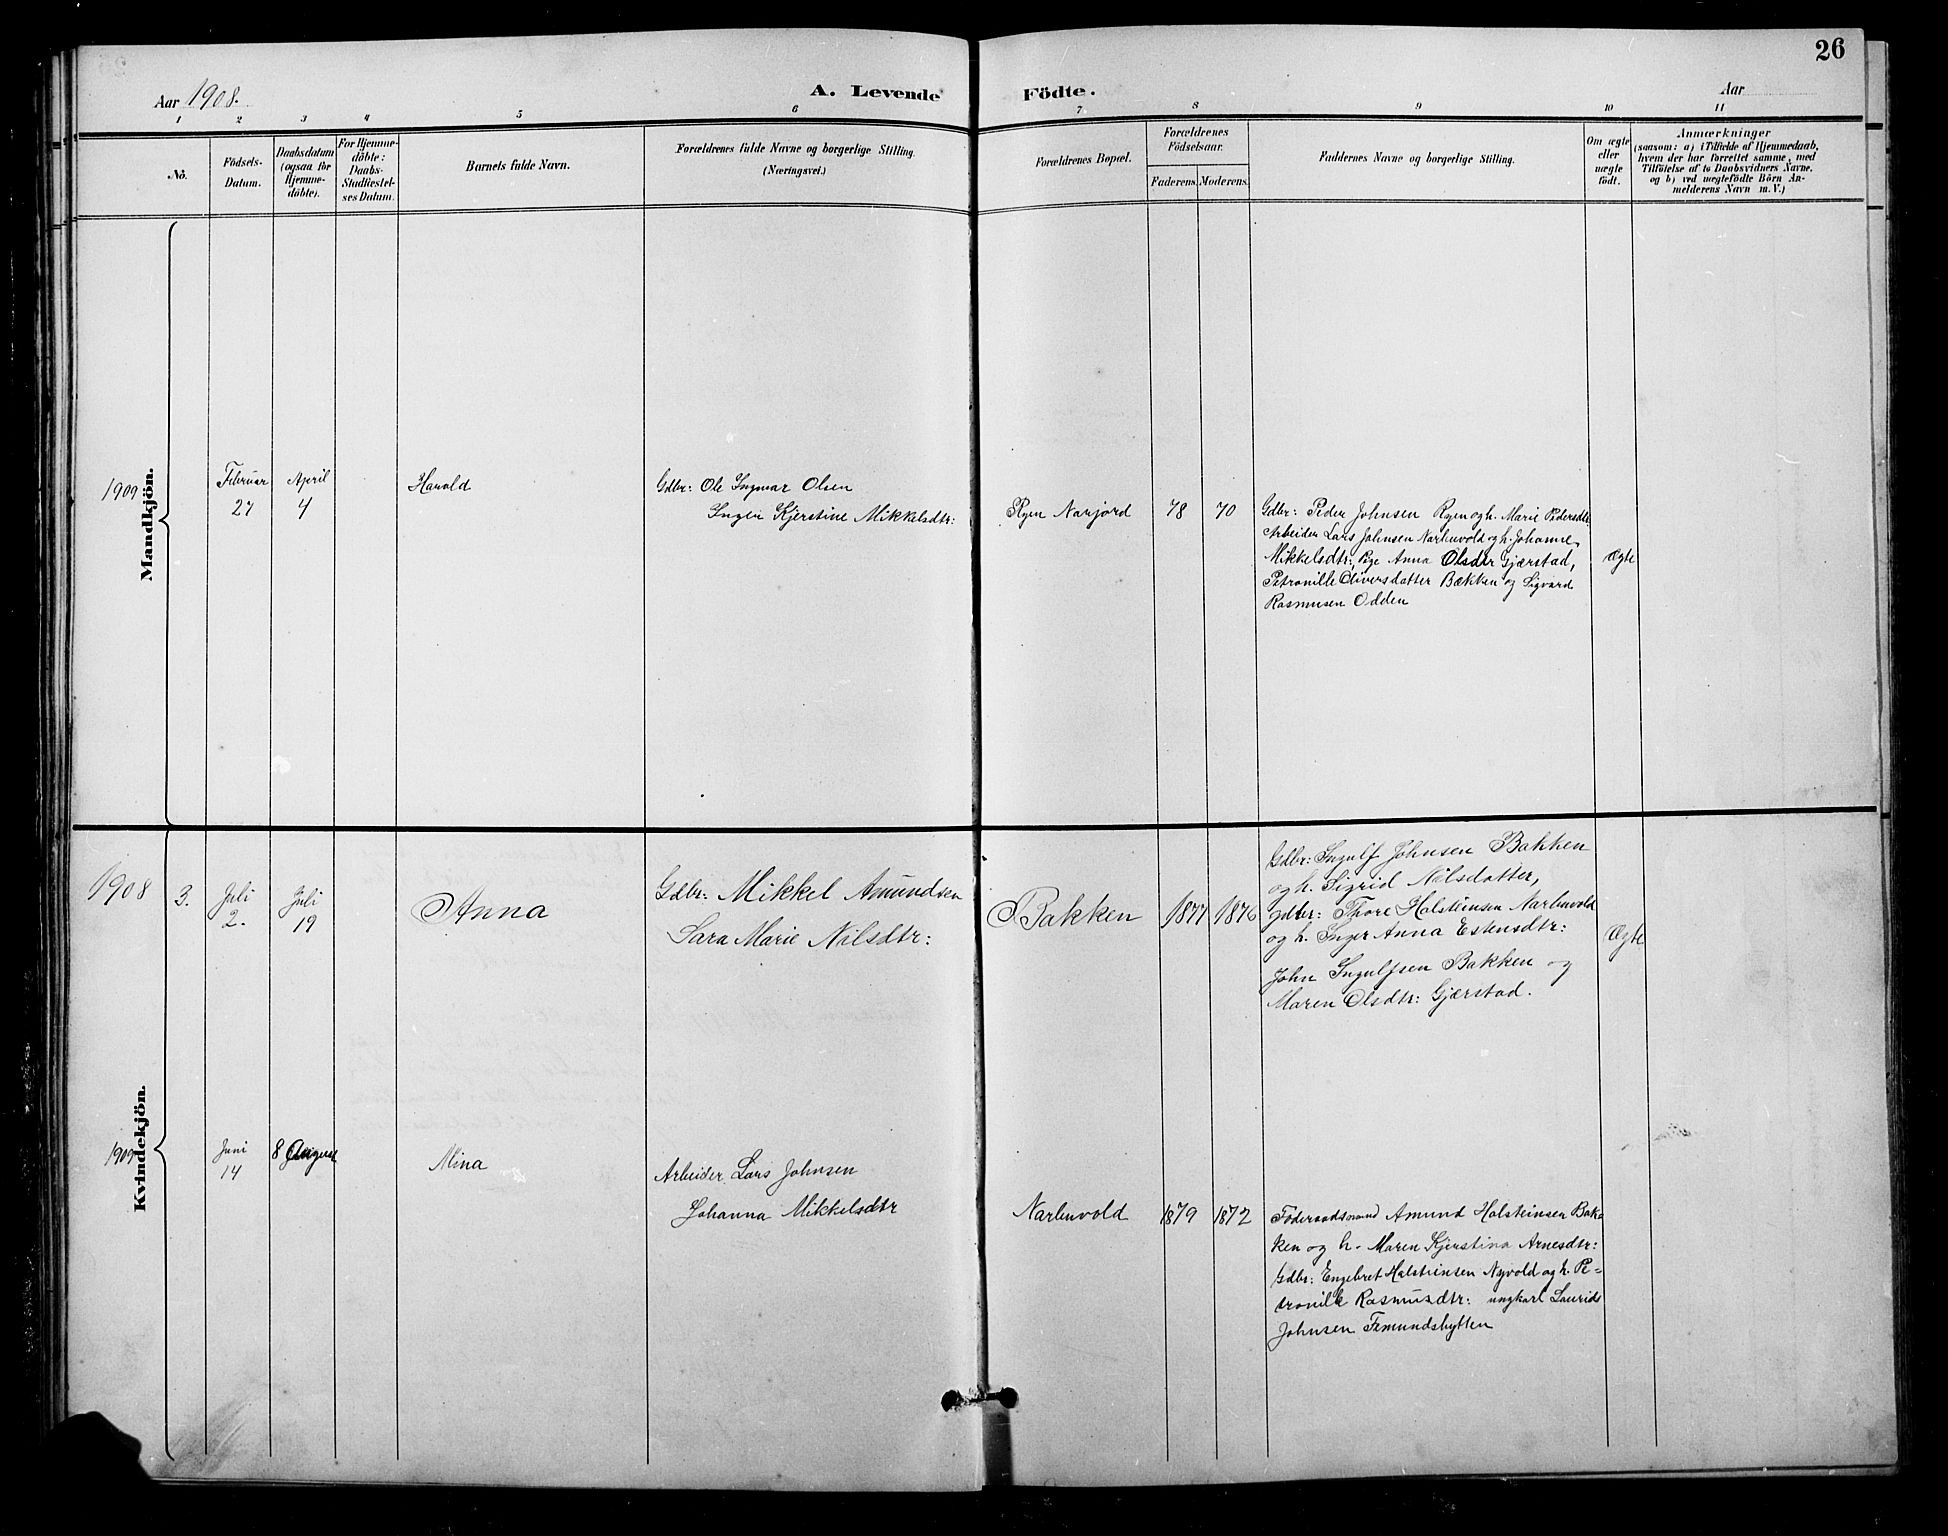 26
Aar 1908.
A. Levende Födte.
Aar
1 2 3 4 5 6 7 8 9 10 11
No.
Födsels-
Datum.
Daabsdatum
(ogsaa for
Hjemme-
döbte).
For Hjemme-
döbte:
Daabs-
Stadfæstel-
ses Datum.
Barnets fulde Navn.
Forældrenes fulde Navne og borgerlige Stilling.
(Næringsvei.)
Forældrenes Bopæl.
Forældrenes
Födselsaar.
Faderens. Moderens.
Faddernes Navne og borgerlige Stilling.
Om ægte
eller
uægte
födt.
Anmærkninger
(saasom: a) i Tilfælde af Hjemmedaab,
hvem der har forrettet samme, med
Tilföielse af to Daabsvidners Navne,
og b) ved uægtefödte Börn An-
melderens Navn m. V.)
Mandkjön.
1909
Februar
27
April
4
Harald
Gdbr: Ole Ingmar Olsen
Kjerstine Mikkelsdtr:
Ryen Narjord
78
70
Gdbr: Peder Johnsen Ryen og h. Marie Pedersdtr.
Arbeider Lars Johnsen Narbuvold og h. Johanne
Mikkelsdtr: Pige Anna Olsdtr Gjærstad,
Petronille Oliversdatter Bækken og Sigvard
Rasmusen Odden
Ægte
Kvindekjön.
1908
3.
Juli
2.
Juli
19
Anna
Gdbr: Mikkel Amundsen
Sara Marie Nilsdtr:
Bakken
1877
1876
Gdbr: Ingulf Johnsen Bakken
og h. Sigrid Nilsdatter,
gdbr: Thore Halsteinsen Narbuvold
og h. Inger Anna Estensdtr:
John Ingulfsen Bakken og
Maren Olsdtr: Gjærstad.
Ægte
1909
Juni
14
8 August
Mina
Arbeider Lars Johnsen
Johanna Mikkelsdtr
Narbuvold
1879
1872
Föderaadsmand Amund Halsteinsen Bak-
ken og h. Maren Kjerstina Arnesdtr:
Gdbr: Engebret Halsteinsen Nyvold og h. Pe-
tronille Rasmusdtr: ungkarl Laurids
Johnsen Femundshytten